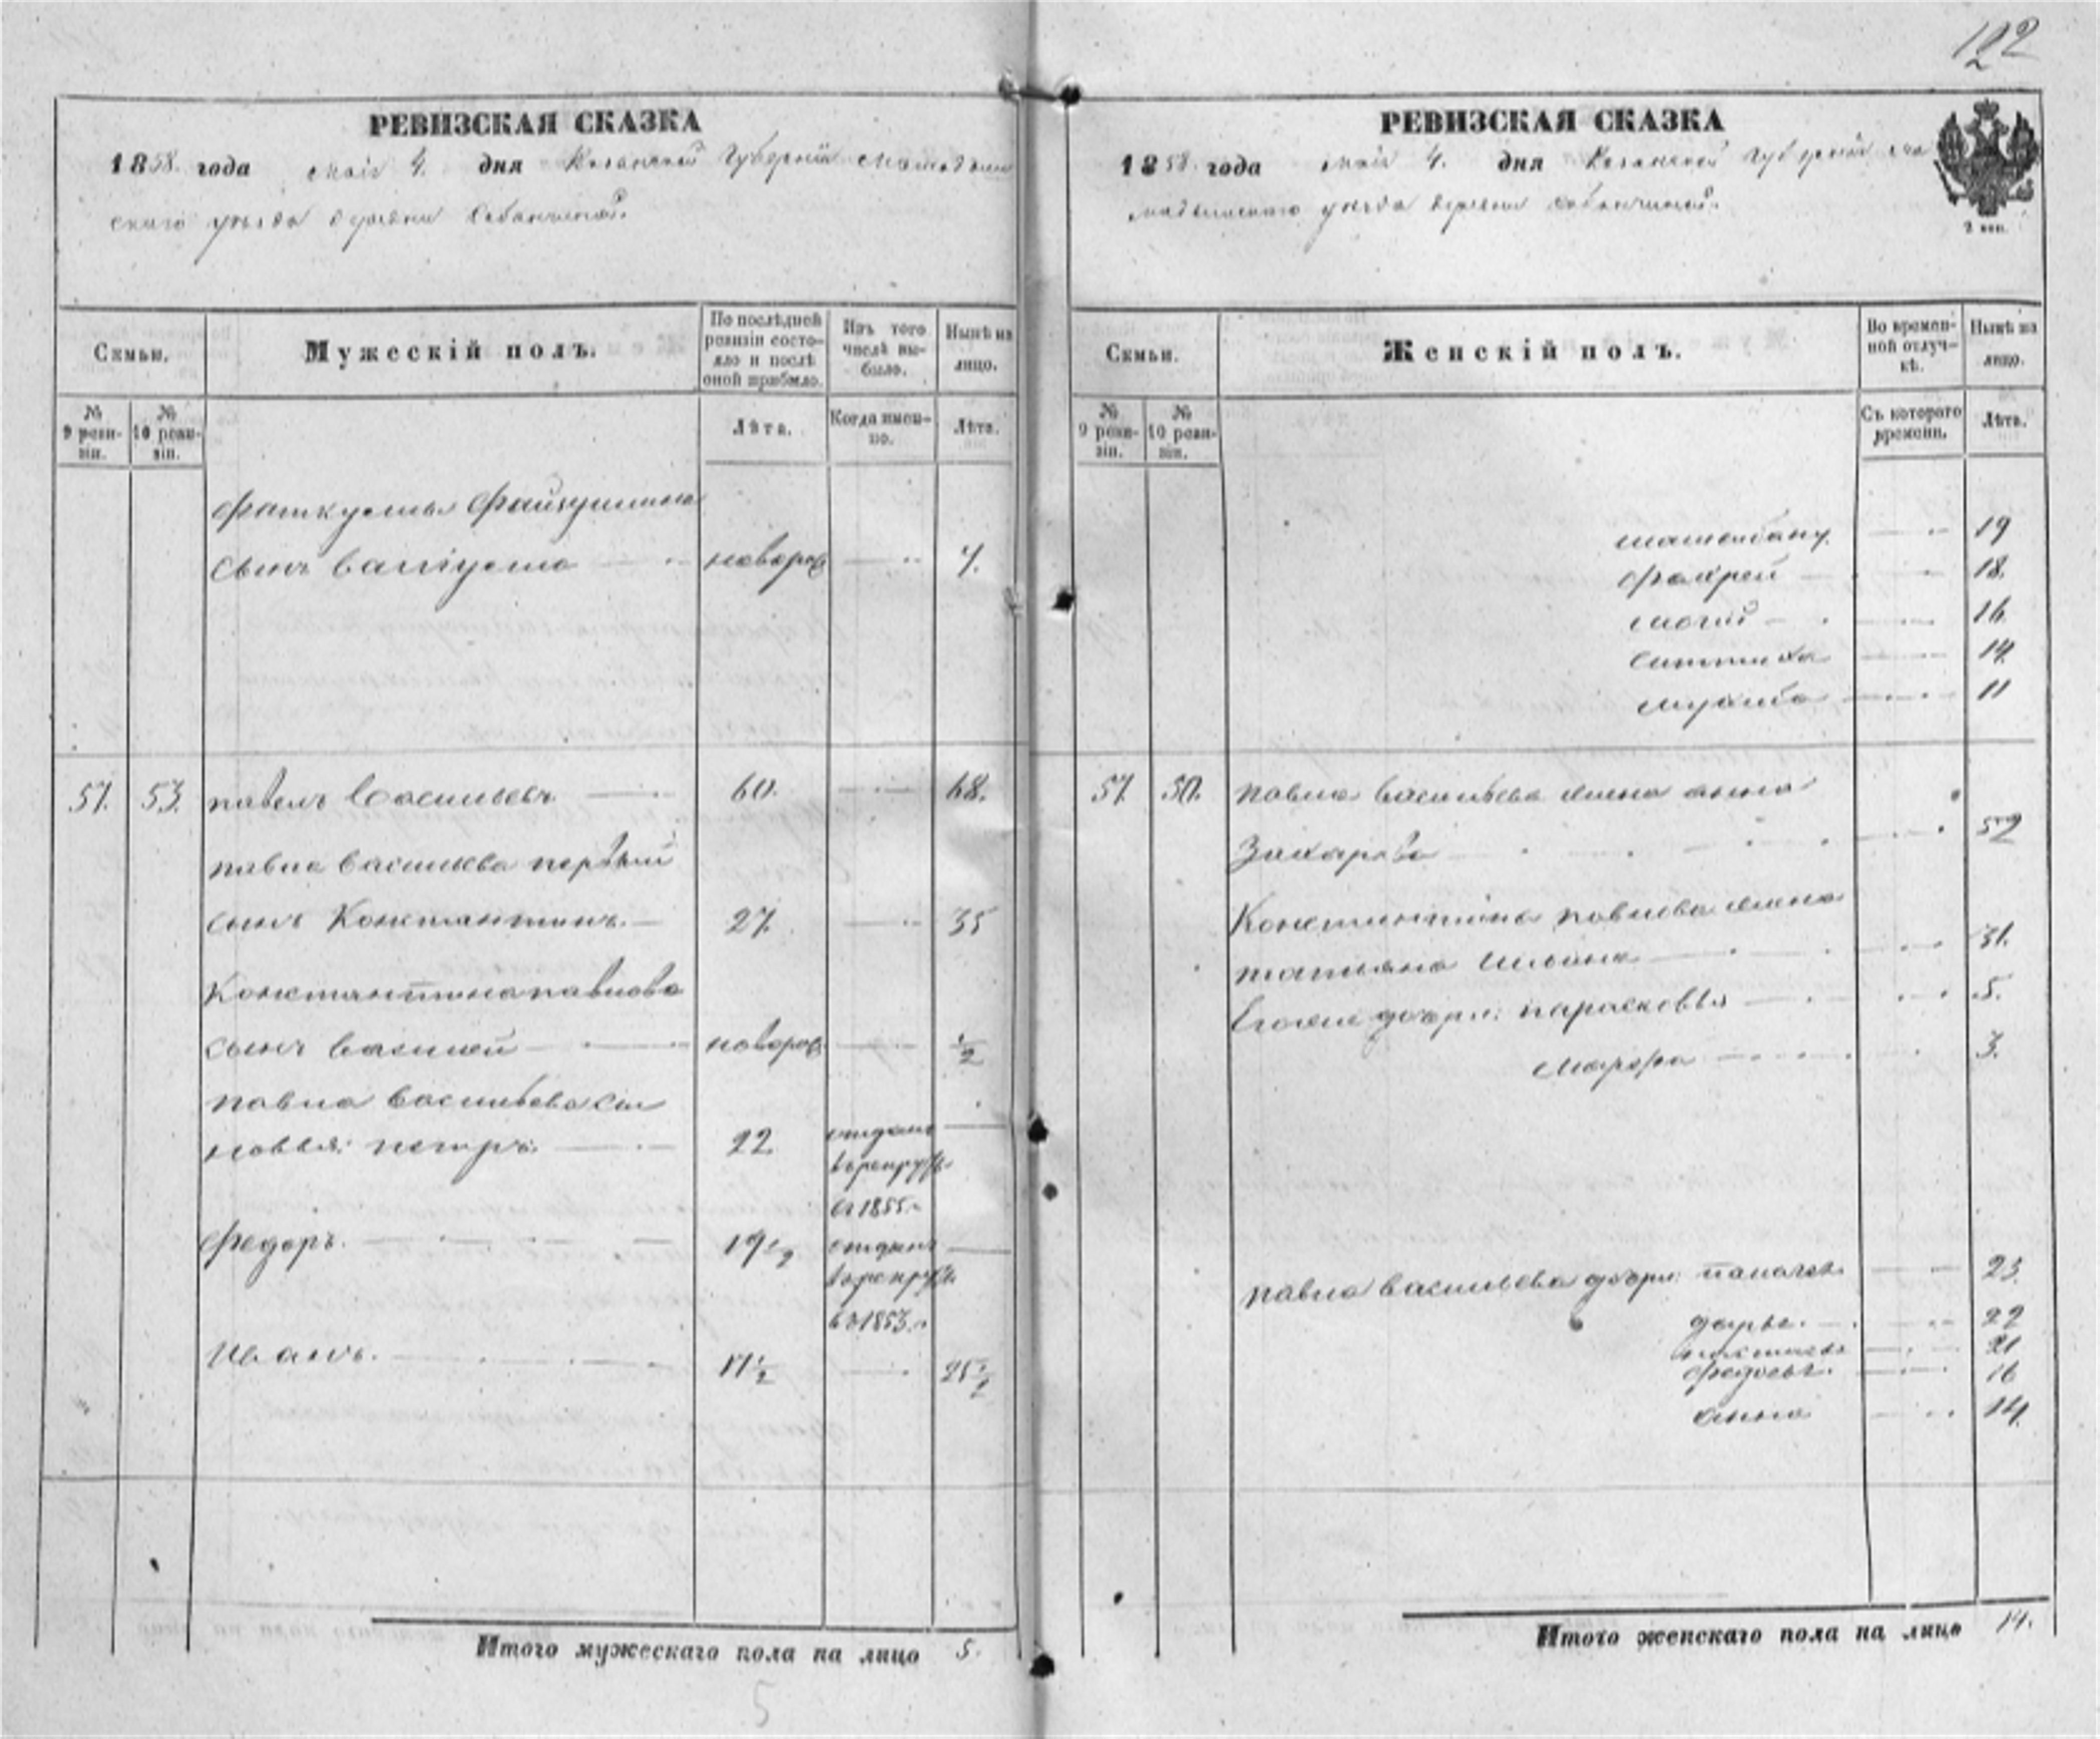 122
РЕВИЗСКАЯ СКАЗКА
1858. года маія 4. дня Казанской Губерніи Мамадыш
скаго уезда деревни Сабанчиной.
Семьи.
Мужескій полъ.
По послѣдней ревизіи состо-
яло и послѣ
оной прибыло.
Изъ того
числа вы-
было.
Нынѣ на
лицо.
№
9 реви-
зіи.
№
10 реви-
зіи.
Лѣта.
Когда имен-
но.
Лѣта.
Фаткуллы Файзуллина
сынъ Валіулла новорож 7.
57. 53. павелъ Васильевъ 60. 68.
павла Васильева первый
сынъ Константинъ. 27. 35
Константина павлова
сынъ Василей новорож ½
павла Васильева сы
новья: петръ. 22. отданъ
врекруты
въ 1855.
Федоръ. 19½ отданъ
врекруты
въ 1853.
Иванъ. 17½ 25½
Итого мужескаго пола на лицо 5.
5
РЕВИЗСКАЯ СКАЗКА
1858. года маія 4. дня Казанской губерніи Ма
мадышскаго уезда деревни Сабанчиной.
2 коп.
Семьи.
Женскій полъ.
Во времен-
ной отлуч-
кѣ.
Нынѣ на
лицо.
№
9 реви-
зіи.
№
10 реви-
зіи.
Съ котораго
времени.
Лѣта.
19
18.
16.
14.
11
57. 50. павла Васильева жена анна
Захарова 52
Константина павлова жена
татьяна Ильина 31.
Егоже дочери: парасковья 5.
Марфа 3.
павла Васильева дочери: 23.
дарья. 22
21
Федосья. 16
анна 14.
Итого женскаго пола на лицо 14.